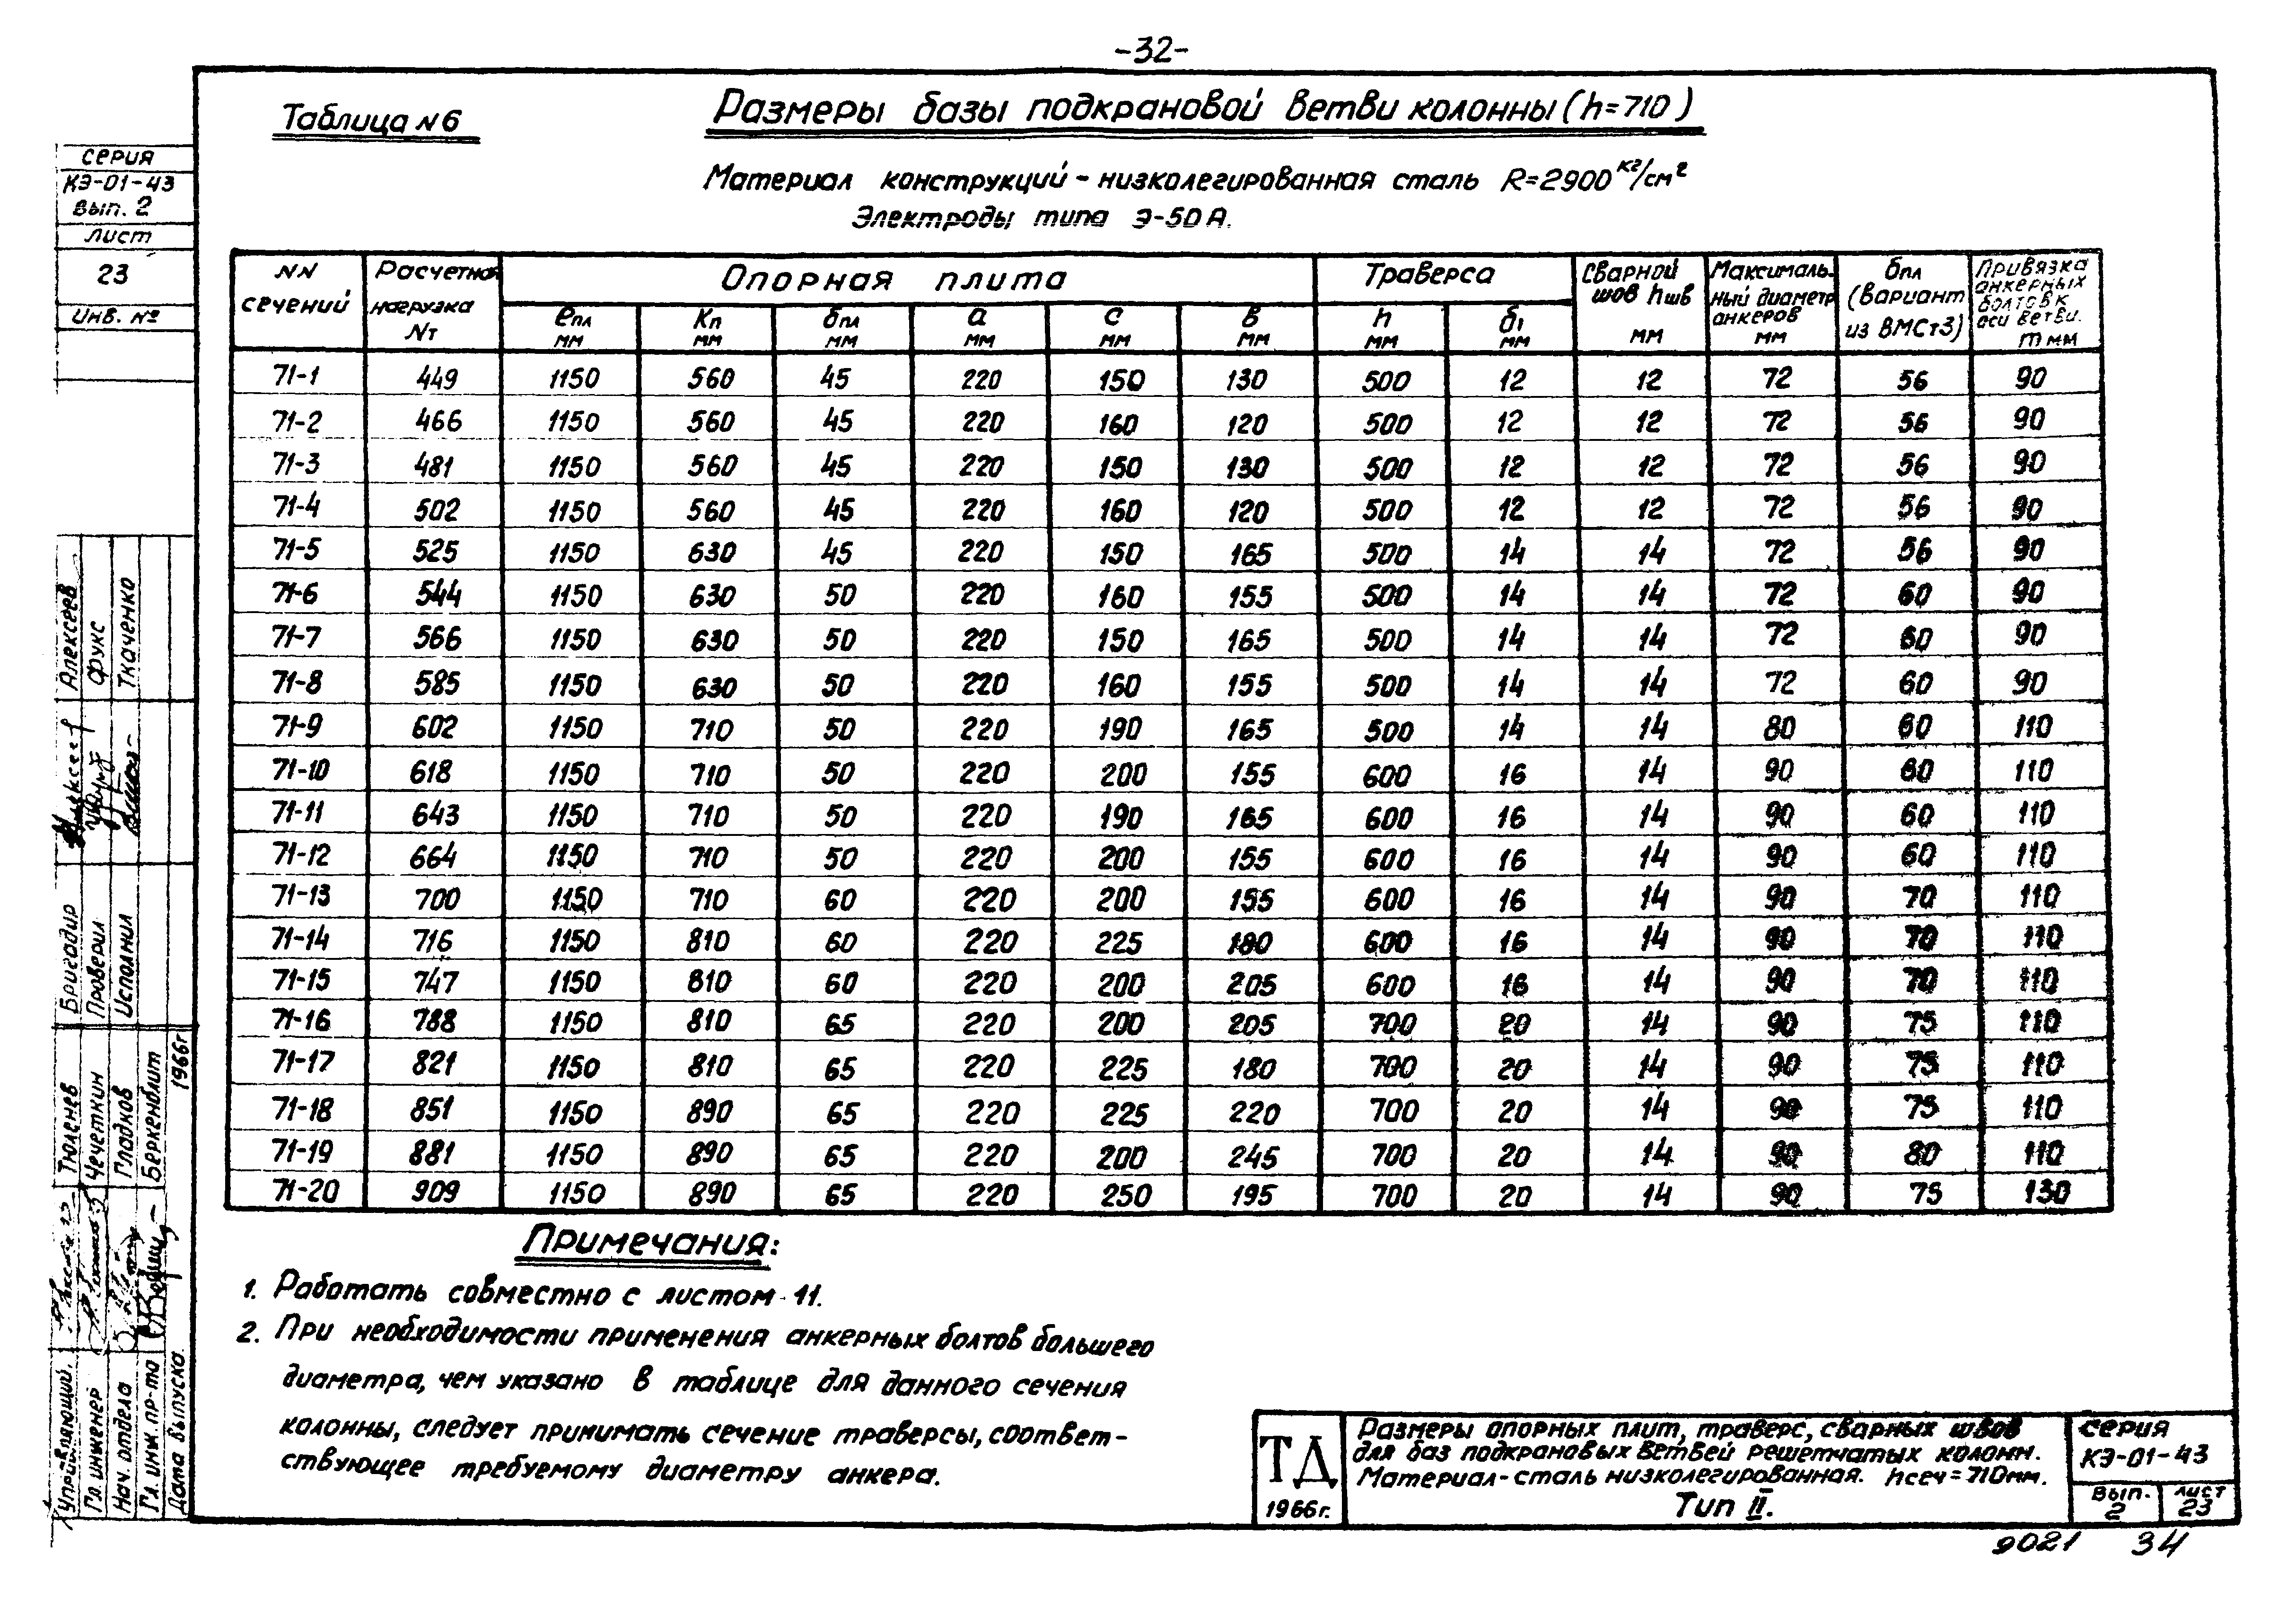 -32-
Таблица №6
Размеры базы подкрановой ветви колонны (h=710)
Материал конструкций - низколегированная сталь R=2900 кг/см²
Электроды типа Э-50А.
серия
КЭ-01-43
вып. 2
лист
23
Инв. №
NN сечений
Расчетная нагрузка Nт
Опорная плита
Траверса
Сварной шов hшв мм
Максимальный диаметр анкеров мм
δпл (вариант из ВМСт3)
Привязка анкерных болтов к оси ветви. m мм
ℓпл мм Kп мм δпл мм а мм с мм в мм h мм δ₁ мм
71-1 449 1150 560 45 220 150 130 500 12 12 72 56 90
71-2 466 1150 560 45 220 160 120 500 12 12 72 56 90
71-3 481 1150 560 45 220 150 130 500 12 12 72 56 90
71-4 502 1150 560 45 220 160 120 500 12 12 72 56 90
71-5 525 1150 630 45 220 150 165 500 14 14 72 56 90
71-6 544 1150 630 50 220 160 155 500 14 14 72 60 90
71-7 566 1150 630 50 220 150 165 500 14 14 72 60 90
71-8 585 1150 630 50 220 160 155 500 14 14 72 60 90
71-9 602 1150 710 50 220 190 165 500 14 14 80 60 110
71-10 618 1150 710 50 220 200 155 600 16 14 90 60 110
71-11 643 1150 710 50 220 190 165 600 16 14 90 60 110
71-12 664 1150 710 50 220 200 155 600 16 14 90 60 110
71-13 700 1150 710 60 220 200 155 600 16 14 90 70 110
71-14 716 1150 810 60 220 225 180 600 16 14 90 70 110
71-15 747 1150 810 60 220 200 205 600 16 14 90 70 110
71-16 788 1150 810 65 220 200 205 700 20 14 90 75 110
71-17 821 1150 810 65 220 225 180 700 20 14 90 75 110
71-18 851 1150 890 65 220 225 220 700 20 14 90 75 110
71-19 881 1150 890 65 220 200 245 700 20 14 90 80 110
71-20 909 1150 890 65 220 250 195 700 20 14 90 75 130
Примечания:
1. Работать совместно с листом 11.
2. При необходимости применения анкерных болтов большего
диаметра, чем указано в таблице для данного сечения
колонны, следует принимать сечение траверсы, соответ-
ствующее требуемому диаметру анкера.
Управляющий. Тюленев
Гл. инженер Чечеткин
Нач. отдела Гладков
Гл. инж. пр-та Беркенблит
Дата выпуска. 1966г
Бригадир Алексеев
Проверил Фукс
Исполнил Ткаченко
ТД
1966г.
Размеры опорных плит, траверс, сварных швов
для баз подкрановых ветвей решетчатых колонн.
Материал-сталь низколегированная. hсеч=710мм.
Тип II.
серия
КЭ-01-43
Вып.
2
лист
23
9021 34